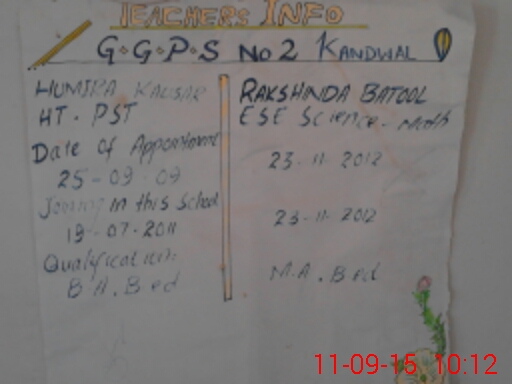 TEACHERS INFO
G.G.P.S No 2 KANDWAL
HUMIRA KAUSAR
HT. PST
Date of Appointment
25-09-09
Joining in this School
19-07-2011
Qualification:
B A. B ed
RAKSHINDA BATOOL
ESE Science-Math
23-11-2012
23-11-2012
M.A. B ed
11-09-15 10:12